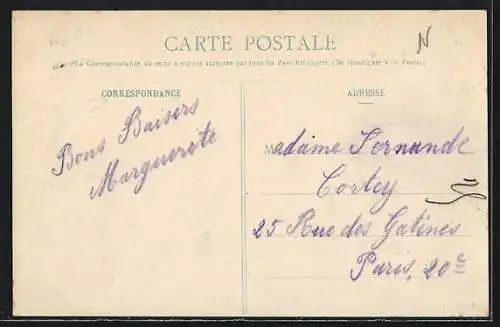 CARTE POSTALE
N
La Correspondance au recto n'est pas acceptée par tous les Pays Étrangers. (Se renseigner à la Poste)
CORRESPONDANCE
ADRESSE
Bons Baisers
Marguerite
Madame Fernande
Cortey
25 Rue des Gatines
Paris, 20e